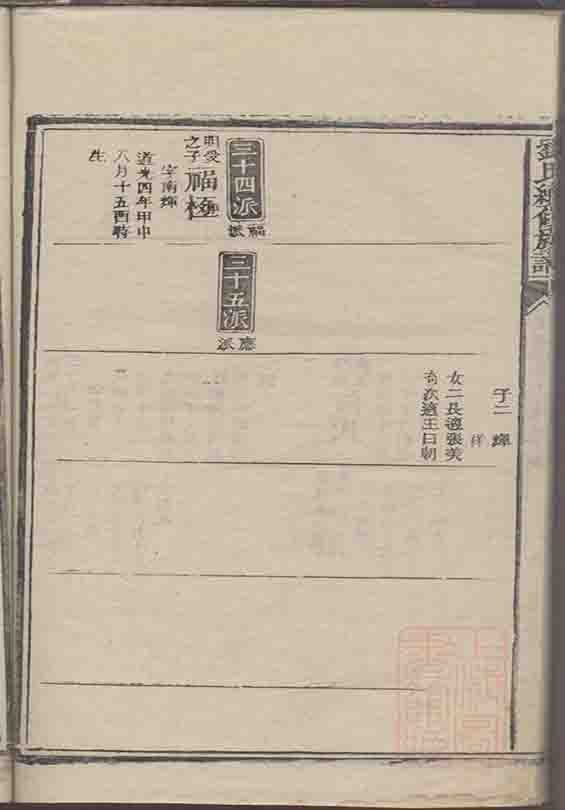 劉氏續修族譜
子二 輝
祥
女二長適張美
次適王曰朝
三十四派
福派
明愛
之子
福極
字南輝
道光四年甲申
八月十五酉時
生
三十五派
應派